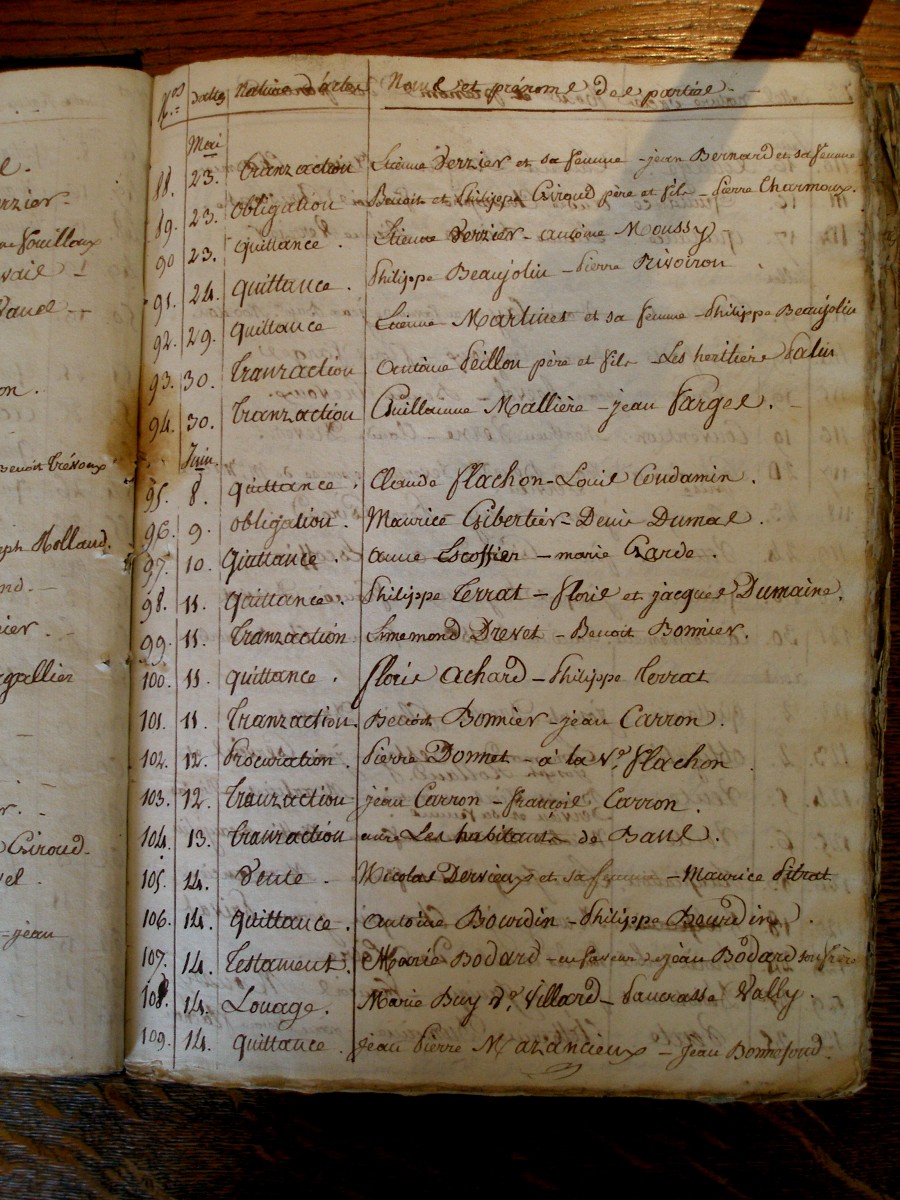 l.
rzier.
ne fouilloux
vail
on.
Benoit Trénoux
ph Rolland.
nd.
ier.
gallier
r.
Giroud.
vel.
=jean
Nos dates Nature d'actes Noms et prénoms des parties.
Mai
88. 23. Tranzaction Etienne Verzier et sa femme - jean Bernard et sa femme
89. 23. obligation Benoit et Philippe Giroud père et fils - Pierre Charmoux.
90 23. quittance. Etienne Verzier - antoine Moussy
91. 24. quittance. Philippe Beaujolin - Pierre Rivoiron
92. 29. quittance Etienne Martinet et sa femme - Philippe Beaujolin
93. 30. Tranzaction antoine Peillon père et fils - Les heritiers Palin
94. 30. Tranzaction Guillaume Mallière - jean Farges.
Juin.
95. 8. quittance. Claude flachon - Louis Coudamin.
96. 9. obligation. Maurice Gibertier - Denis Dumas.
97. 10. Quittance. anne Escoffier - marie Garde.
98. 11. Quittance. Philippe Terrat - floris et jacques Dumaine.
99. 11. Tranzaction Simemond Drevet - Benoit Bonnier.
100. 11. quittance. floris achard - Philippe Terrat
101. 11. Tranzaction. Benoit Bonnier - jean Carron.
102. 12. Procuration. Pierre Donnet - à la Ve. flachon
103. 12. Tranzaction jean Carron - françois Carron.
104. 13. Tranzaction entre Les habitants de Bans.
105. 14. Vente. Nicolas Dervieux et sa femme - Maurice Pitrat
106. 14. Quittance. antoine Bourdin - Philippe Bourdin.
107. 14. Testament. Marie Bodard - en faveur de jean Bodard son frère
108. 14. Louage. Marie Buy Ve. Villard - Pancrasse Vally.
109. 14. quittance. jean Pierre Mazancieux - Jean Bonnefond.